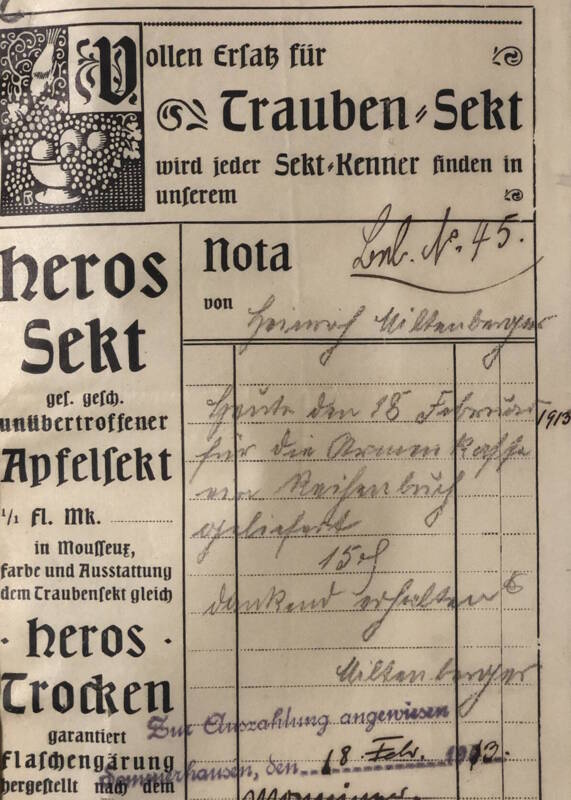 Vollen Ersatz für
Trauben-Sekt
wird jeder Sekt-Kenner finden in
unserem
Heros
Sekt
ges. gesch.
unübertroffener
Apfelsekt
1/1 Fl. Mk.
in Mousseux,
Farbe und Ausstattung
dem Traubensekt gleich
· Heros ·
Trocken
garantiert
Flaschengärung
hergestellt nach dem
Nota
Bel. No. 45.
von Heinrich Miltenberger
Heute den 18 Februar 1913
für die Armen Kasse
ein Reisenbuch
geliefert
15
dankend erhalten
Miltenberger
Zur Auszahlung angewiesen
Sommerhausen, den 18 Febr. 1913.